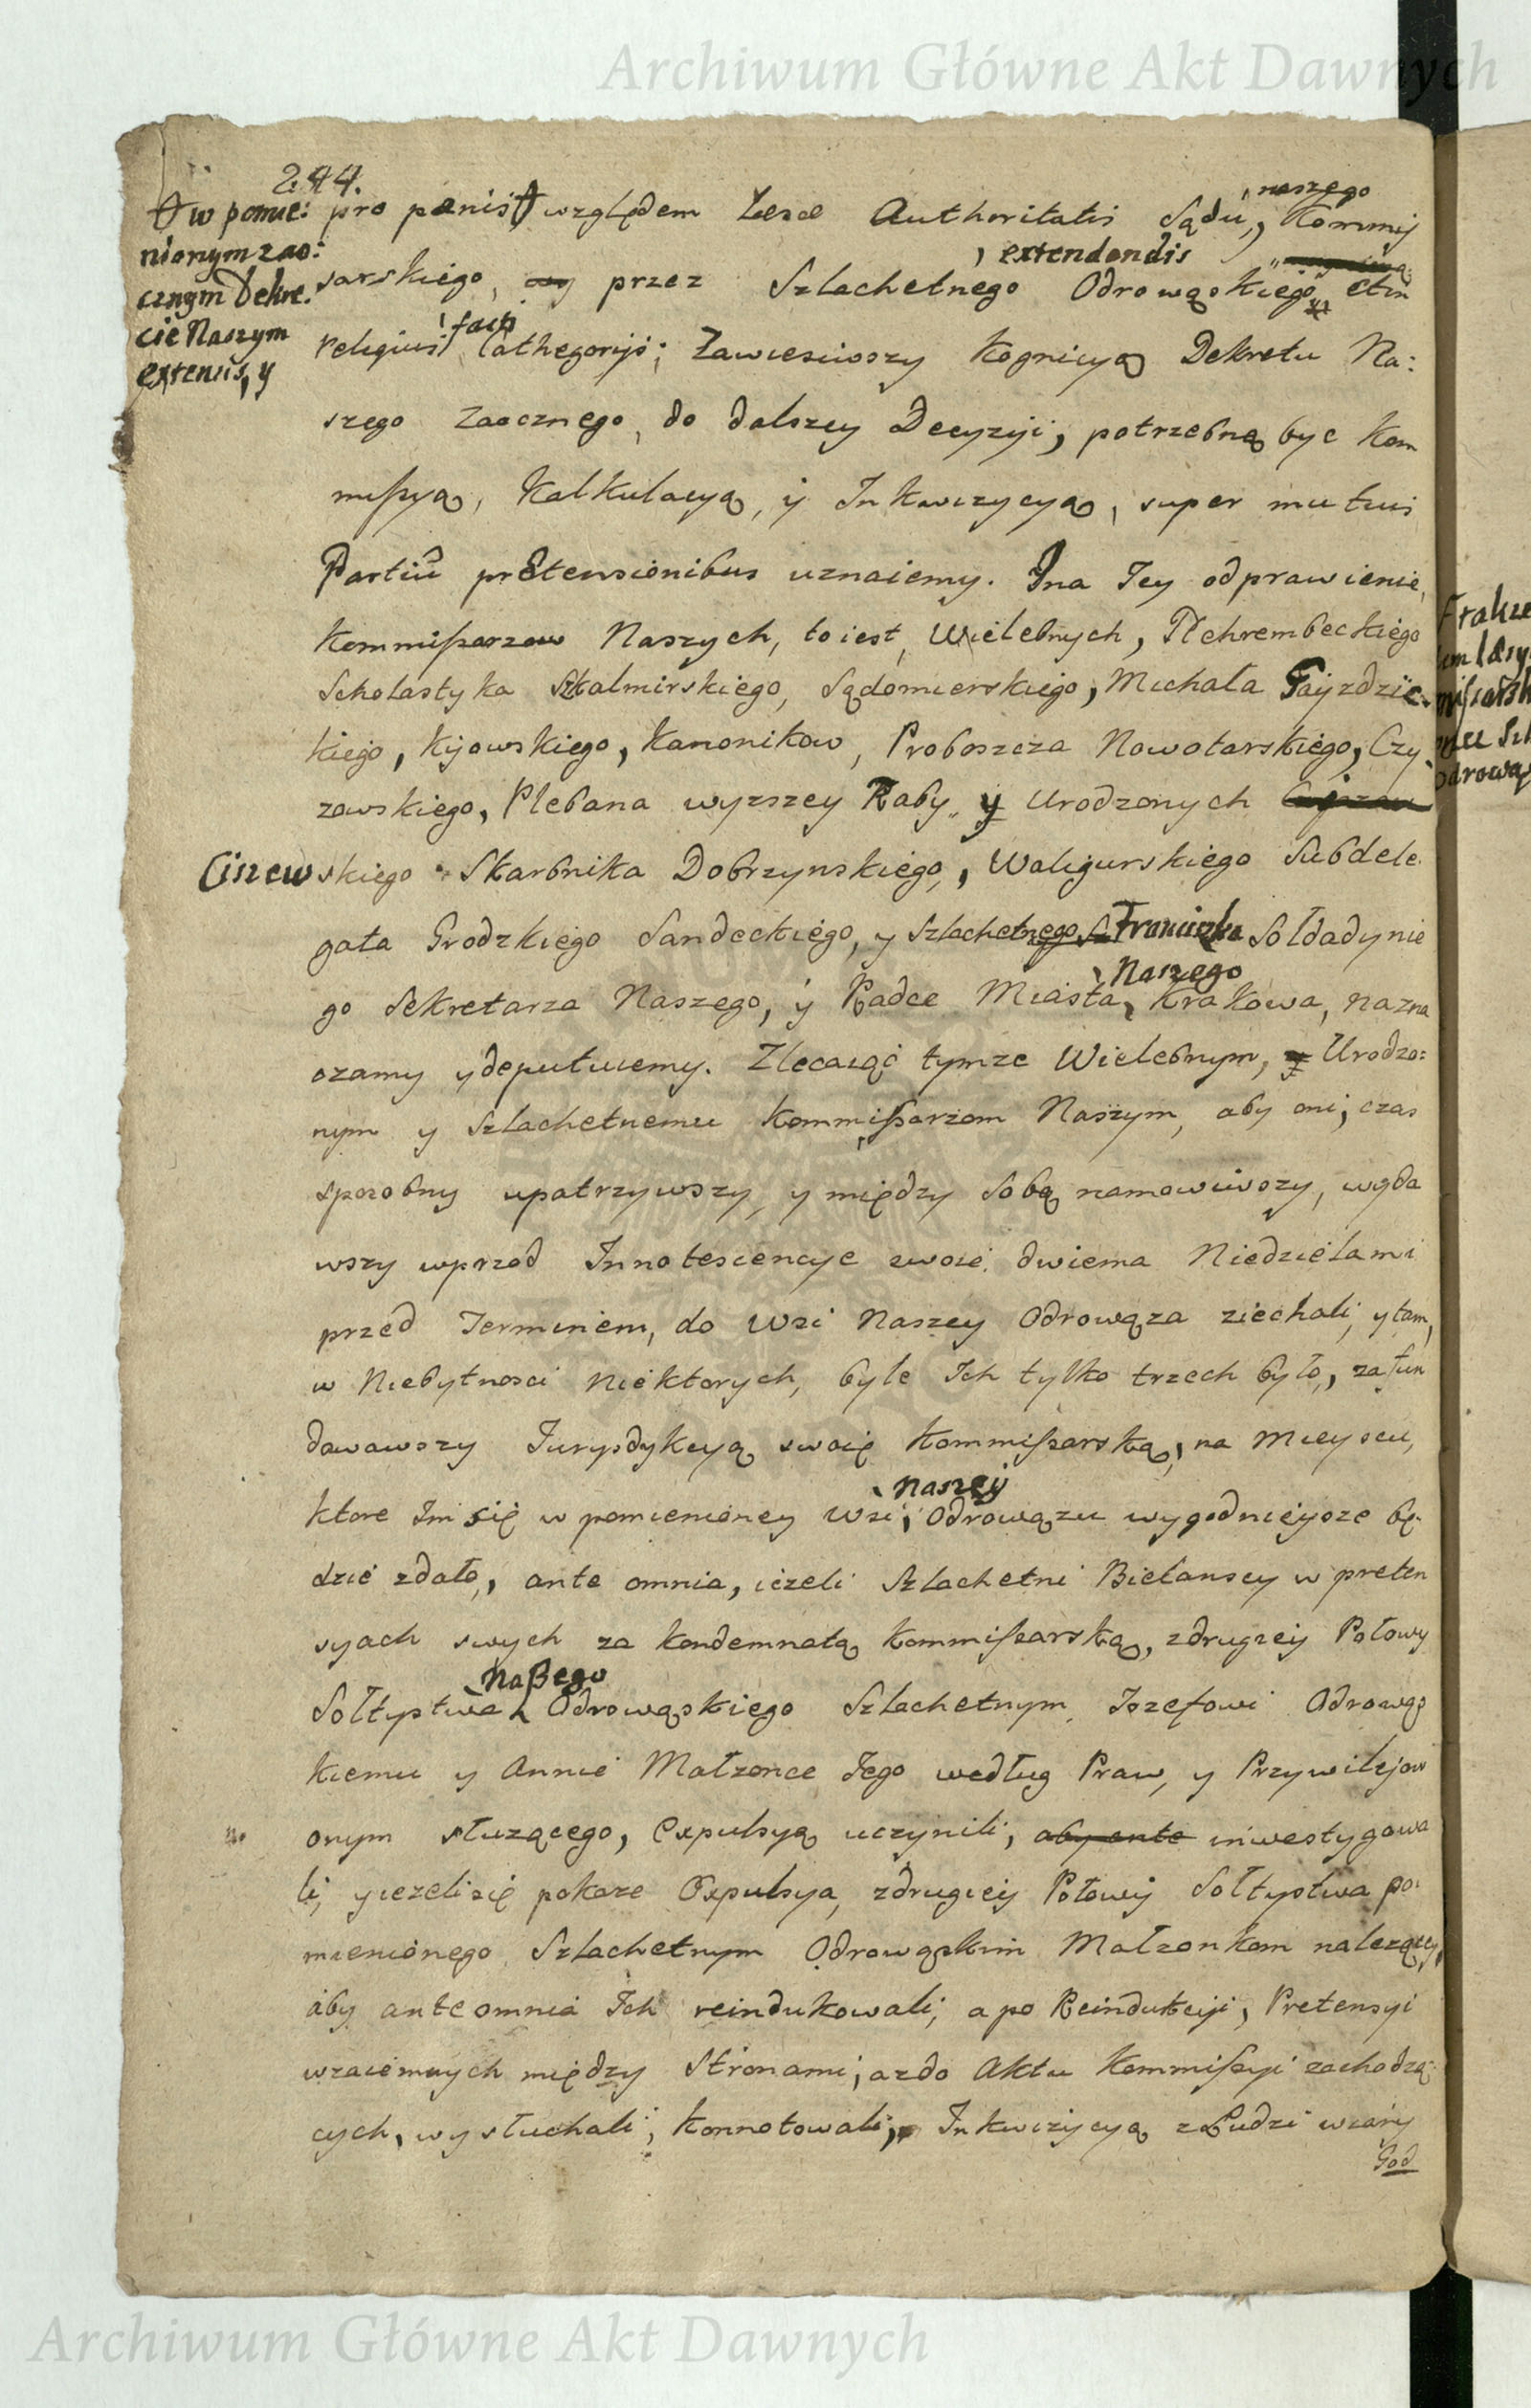 Archiwum Główne Akt Dawnych
244.
w pomie:
nionym zao:
cznym Dekre.
cie Naszym
extensis, y
pro pænis względem Læsæ Authoritatis Sądu, naszego Kommis
sarskiego, przez Szlachetnego Odrowąskiego extendendis et in
religius facti Cathegoryis; Zawiesiwszy Kognicyą Dekretu Na:
szego Zaocznego, do dalszey Decyzyi, potrzebną byc Kom
mißyą, Kalkulacyą, y Inkwizycyą, super mutuis
Partiū prætensionibus uznaiemy. Ina Jey odprawienie,
Kommißarzow Naszych, to iest, Wielebnych, Płchrembeckiego
Scholastyka Szkalmirskiego, Sądomierskiego, Michała Gayzdzic
kiego, Kijowskiego, Kanonikow, Proboszcza Nowotarskiego, Czy
zowskiego, Plebana wyzszey Raby, y Urodzonych
Ciszewskiego Skarbnika Dobrzynskiego, Waligurskiego Subdele
gata Grodzkiego Sandeckiego, y Szlachetnego Franciszka Sołdadynie
go Sekretarza Naszego, y Radce Miasta, Naszego Krakowa, nazna
czamy y deputuiemy. Zlecaiąc tymze Wielebnym, y Urodzo:
nym y Szlachetnemu Kommißarzom Naszym, aby oni, czas
sposobny upatrzywszy, y między sobą namowiwszy, wyda
wszy wprzod Innotescencye swoie dwiema Niedzielami
przed Terminem, do Wsi Naszey Odrowąza ziechali, y tam,
w Niebytnosci niektorych, byle Ich tylko trzech było, zafun
dowawszy Jurysdykcyą swoię Kommißarską, na Mieyscu,
ktore Im się w pomienioney Wsi, Naszey Odrowązu wygodnieysze bę
dzie zdało, ante omnia, iezeli Szlachetni Bielanscy w preten
syach swych za Kondemnatą Kommißarską, z drugiey Połowy
Sołtystwa Naßego Odrowąskiego Szlachetnym Jozefowi Odrowąs
kiemu y Annie Małzonce Jego według Praw, y Przywilejow
onym słuzącego, Expulsyą uczynili, aby ante inwestygowa
li, y iezeli się pokaze Expulsya, z drugiey Połowy Sołtystwa po
mienionego Szlachetnym Odrowąskim Małzonkom nalezącey,
aby ante omnia Ich reindukowali, a po Reindukcyi, Pretensyi
wzaiemnych między Stronami, az do Aktu Kommißyi zachodzą
cych, wysłuchali, Konnotowali, Inkwizycyą z Ludzi wiary
God
Archiwum Główne Akt Dawnych